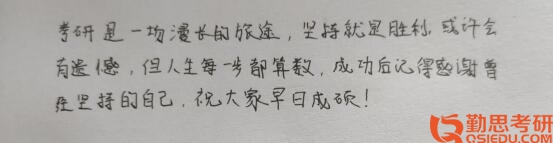 考研是一场漫长的旅途，坚持就是胜利，或许会
有遗憾，但人生每一步都算数，成功后记得感谢曾
经坚持的自己，祝大家早日成硕！
勤思考研
QSIEDU.COM